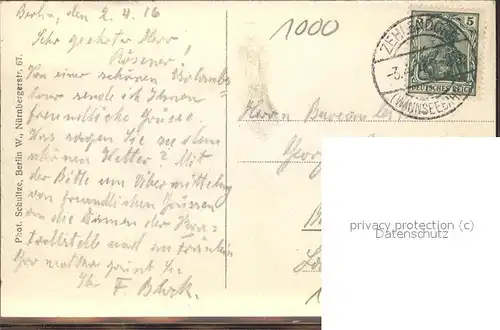 Berlin, den 2.4.16
Sehr geehrter Herr
Rösener!
Von einer schönen Urlaubs
tour sende ich Ihnen
freundliche Grüsse.
Was sagen Sie zu dem
schönen Wetter? Mit
der Bitte um Übermittelung
von freundlichen Grüssen
an die Damen der
und an Fräulein
grüsst Sie
Ihr F.
Phot. Schultze, Berlin W., Nürnbergerstr. 67.
1000
5
DEUTSCHES REICH
ZEHLENDORF
(WANNSEEBAHN)
Herrn Bureau
Georg
privacy protection (c)
Datenschutz